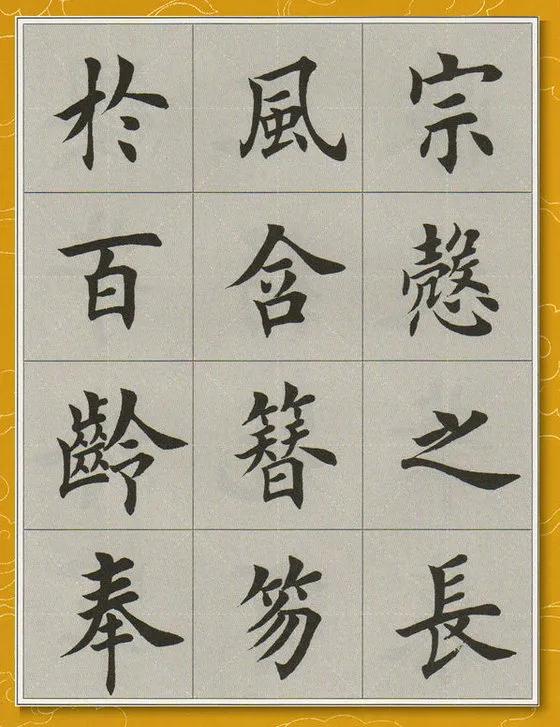 宗愨之長
風舍簪笏
於百齡奉